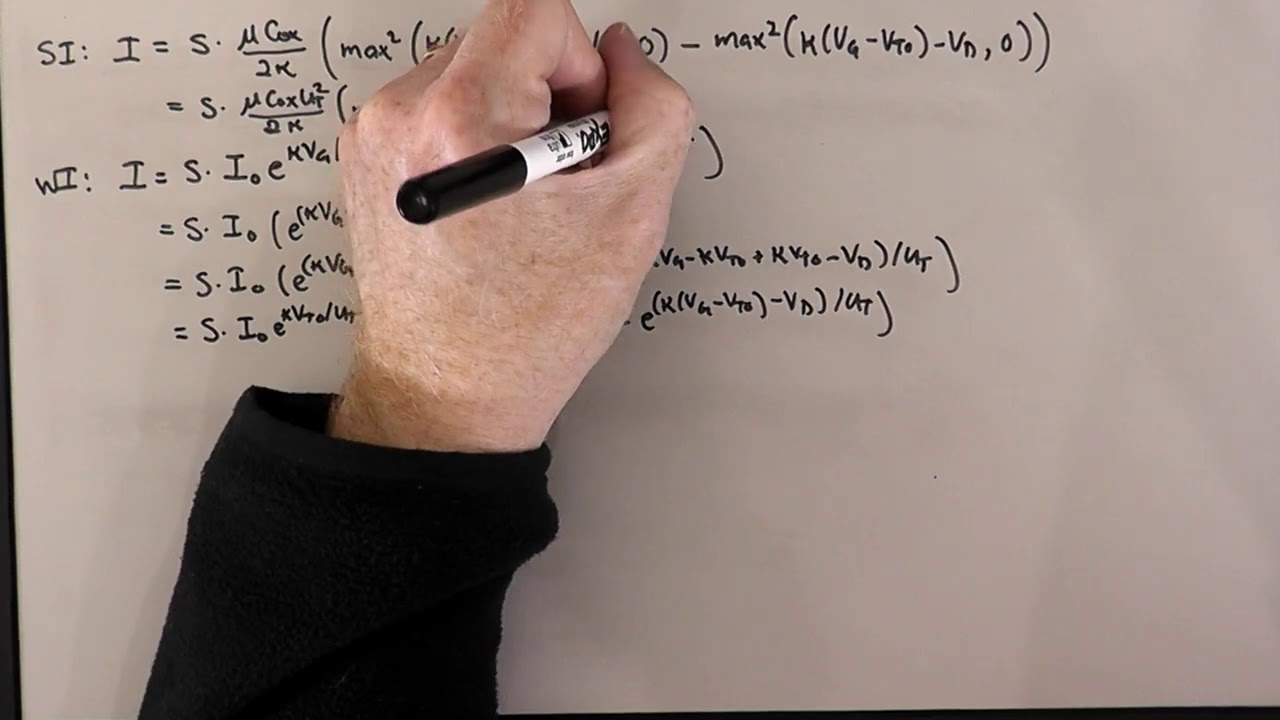 SI: I = S · μCox/2κ (max²(κ( 0) − max²(κ(V_G − V_T0) − V_D, 0))
= S · μCoxU_T²/2κ (
WI: I = S · I₀ e^κV_G/ )
= S · I₀ (e^(κV_G
= S · I₀ (e^(κV_G V_G − κV_T0 + κV_T0 − V_D)/U_T)
= S · I₀ e^κV_T0/U_T e^(κ(V_G − V_T0) − V_D)/U_T)
EXPO